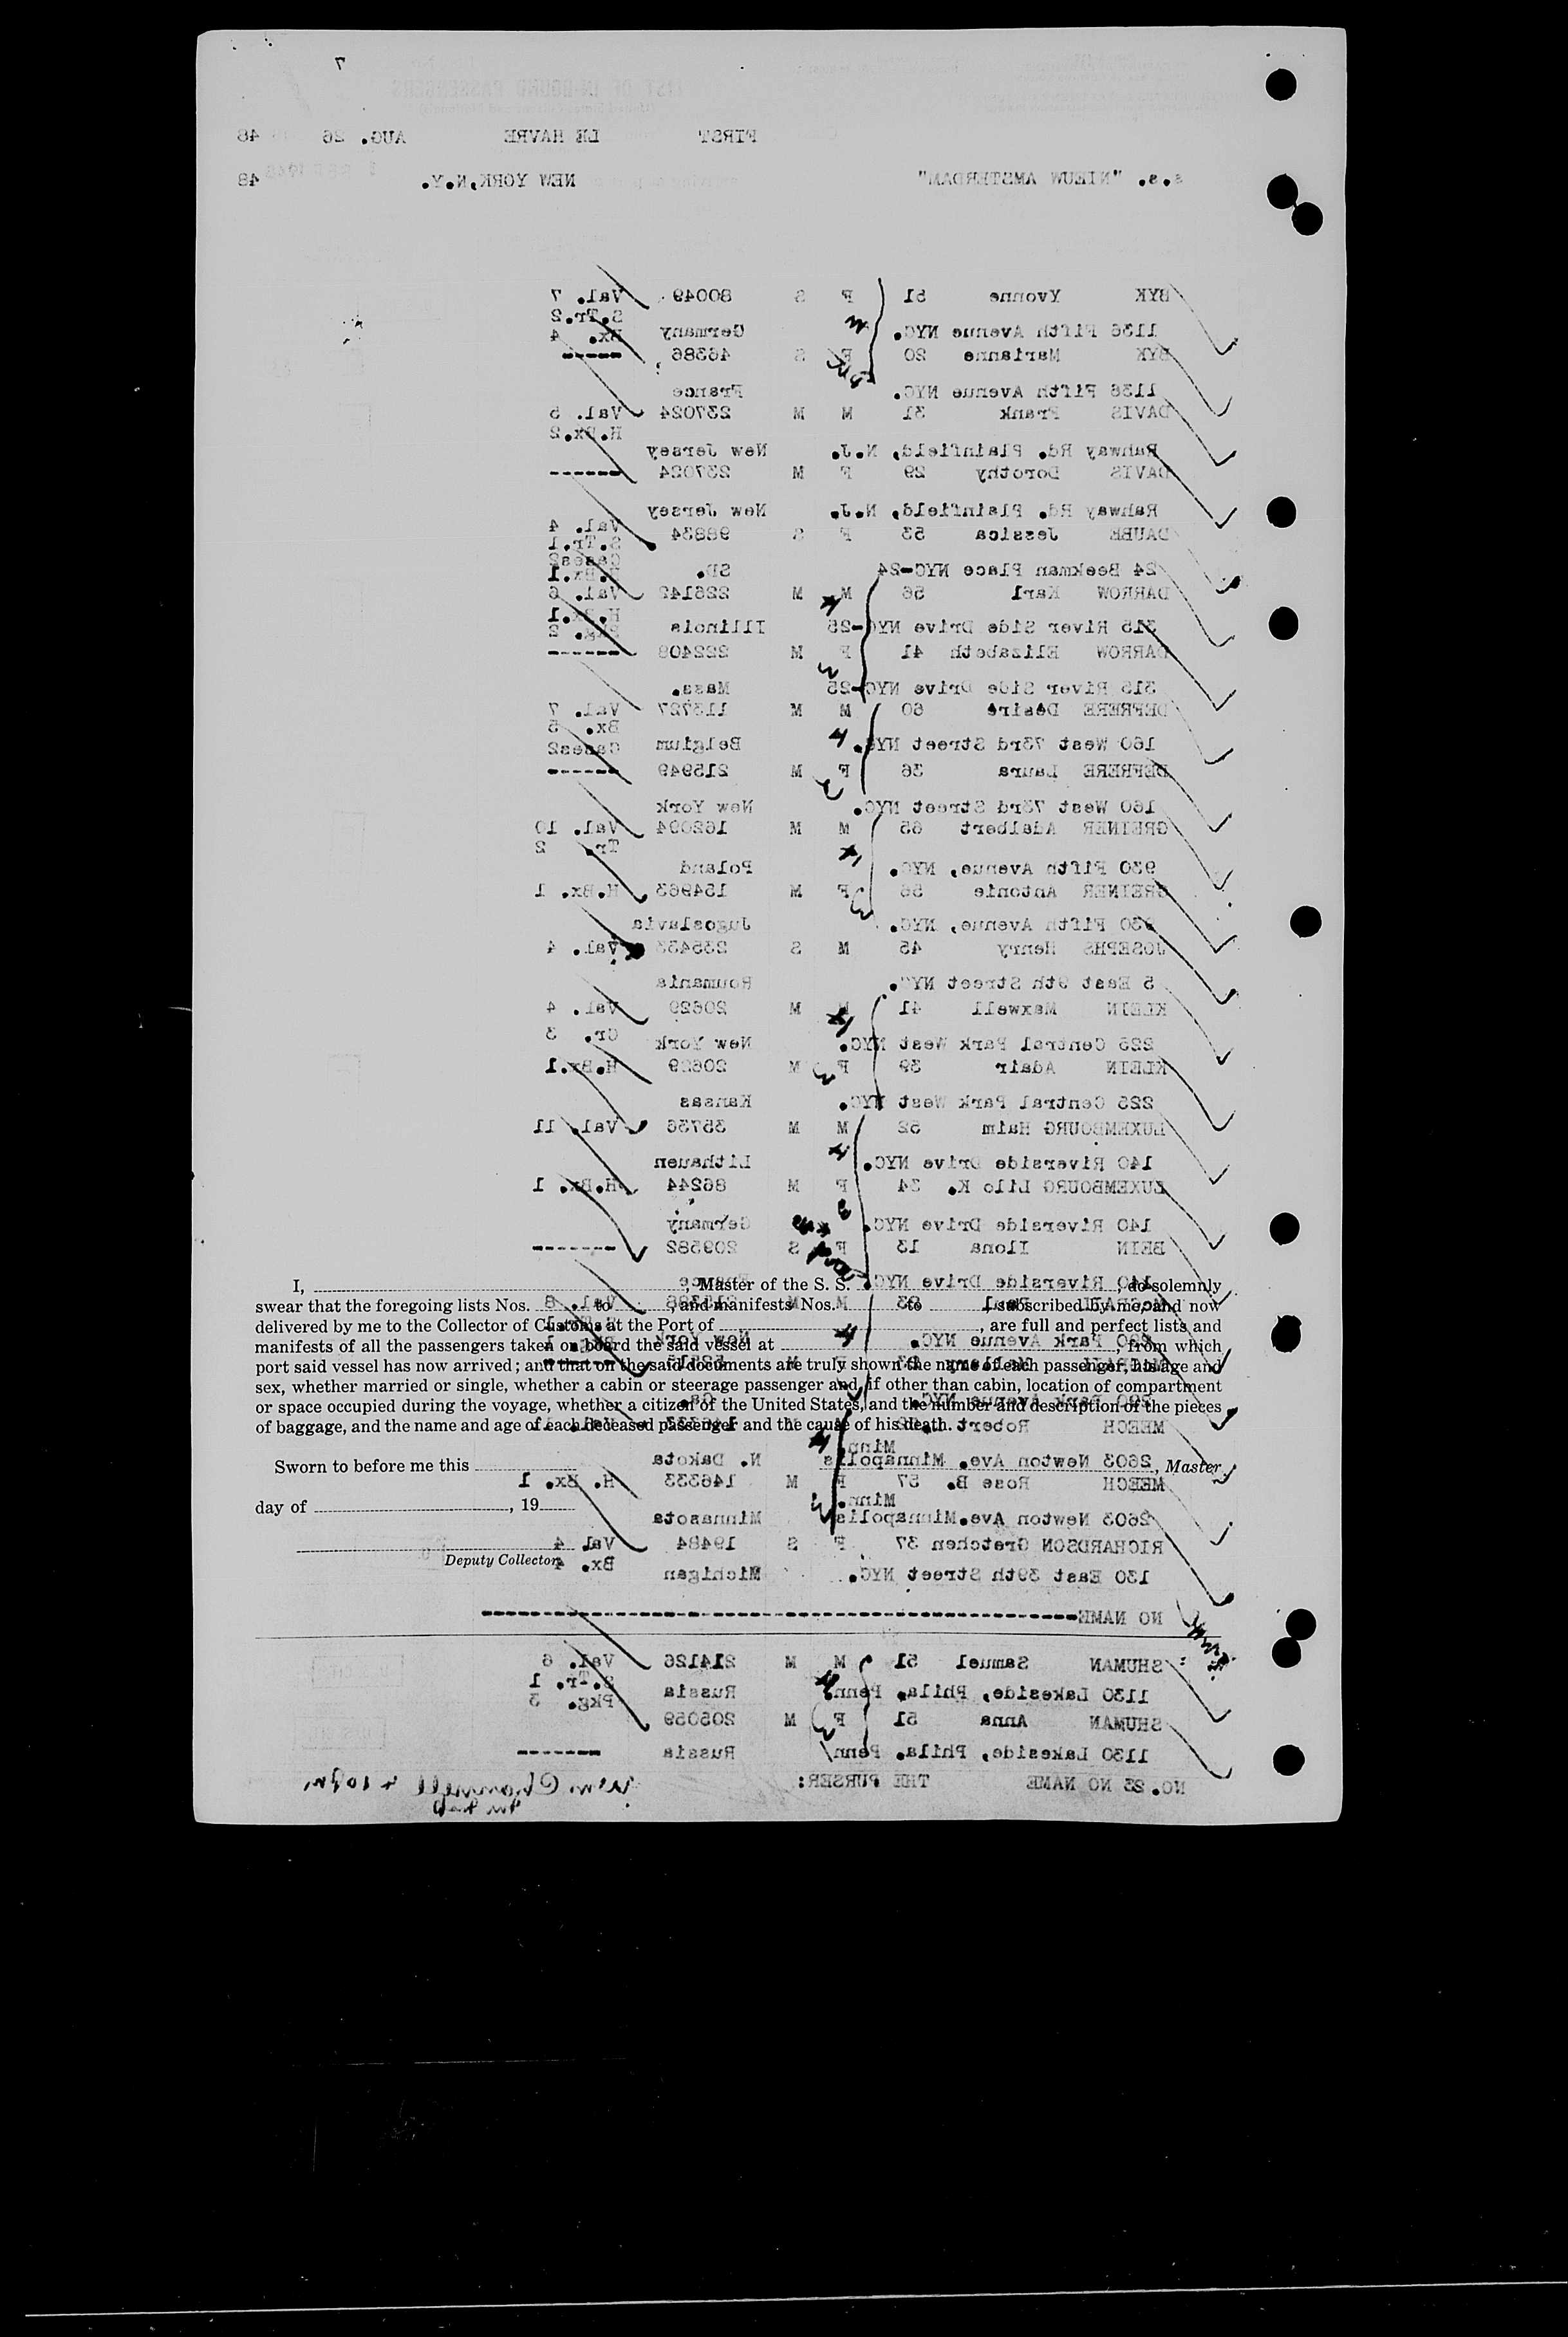 7
FIRST LE HAVRE AUG. 26 48
s.s. "NIEUW AMSTERDAM" NEW YORK,N.Y. 48
BYK Yvonne 51 F S 80049 Val. 7
S.Tr.2
1136 Fifth Avenue NYC. Germany Bx. 4
BYK Marianne 20 F S 46386 -----
1136 Fifth Avenue NYC. France
DAVIS Frank 31 M M 237024 Val. 5
H.Bx.2
Rahway Rd. Plainfield, N.J. New Jersey
DAVIS Dorothy 29 F M 237024 ------
Rahway Rd. Plainfield, N.J. New Jersey
DAUBE Jessica 53 F S 98834 Val. 4
S.Tr.1
Cases2
24 Beekman Place NYC-24 SD. H.Bx.1
DARROW Karl 56 M M 226142 Val. 6
H.Bx.1
315 River Side Drive NYC-25 Illinois Pkg. 2
DARROW Elizabeth 41 F M 222408 ------
315 River Side Drive NYC-25 Mass.
DEFRERE Désiré 60 M M 113727 Val. 7
Bx. 5
160 West 73rd Street NYC. Belgium Cases2
DEFRERE Laura 36 F M 215949 ------
160 West 73rd Street NYC. New York
GREINER Adalbert 65 M M 162094 Val. 10
Tr. 2
930 Fifth Avenue, NYC. Poland
GREINER Antonie 56 F M 154963 H.Bx. 1
930 Fifth Avenue, NYC. Jugoslavia
JOSEPHS Henry 45 M S 235433 Val. 4
5 East 9th Street NYC. Roumania
KLEIN Maxwell 41 M M 20629 Val. 4
Gr. 3
225 Central Park West NYC. New York
KLEIN Adair 39 F M 20629 H.Bx.1
225 Central Park West NYC. Kansas
LUXEMBOURG Haim 52 M M 35736 Val. 11
140 Riverside Drive NYC. Lithauen
LUXEMBOURG Lilo K. 34 F M 86244 H.Bx. 1
140 Riverside Drive NYC. Germany
BEIN Ilona 13 F S 209582 -------
140 Riverside Drive NYC. France
I, , Master of the S. S. , do solemnly
swear that the foregoing lists Nos. to , and manifests Nos. to , subscribed by me, and now
delivered by me to the Collector of Customs at the Port of , are full and perfect lists and
290 Park Avenue NYC. New York
manifests of all the passengers taken on board the said vessel at , from which
port said vessel has now arrived; and that on the said documents are truly shown the name of each passenger, his age and
sex, whether married or single, whether a cabin or steerage passenger and, if other than cabin, location of compartment
290 Park Avenue NYC. Ga.
or space occupied during the voyage, whether a citizen of the United States, and the number and description of the pieces
of baggage, and the name and age of each deceased passenger and the cause of his death.
MEECH Robert
Minn.
2603 Newton Ave. Minnapolis N. Dakota
Sworn to before me this , Master.
MEECH Rose B. 57 F M 146333 H. Bx. 1
Minn.
day of , 19
2603 Newton Ave.Minnapolis Minnasota
RICHARDSON Gretchen 37 F S 19484 Val 4
Deputy Collector.
Bx. 4
130 East 39th Street NYC. Michigan
NO NAME------------------------------------------------
SHUMAN Samuel 51 M M 214126 Val. 6
S.Tr. 1
1130 Lakeside, Phila. Penn. Russia Pkg. 3
SHUMAN Anna 51 F M 205059
1130 Lakeside, Phila. Penn Russia -------
NO. 23 NO NAME THE PURSER: